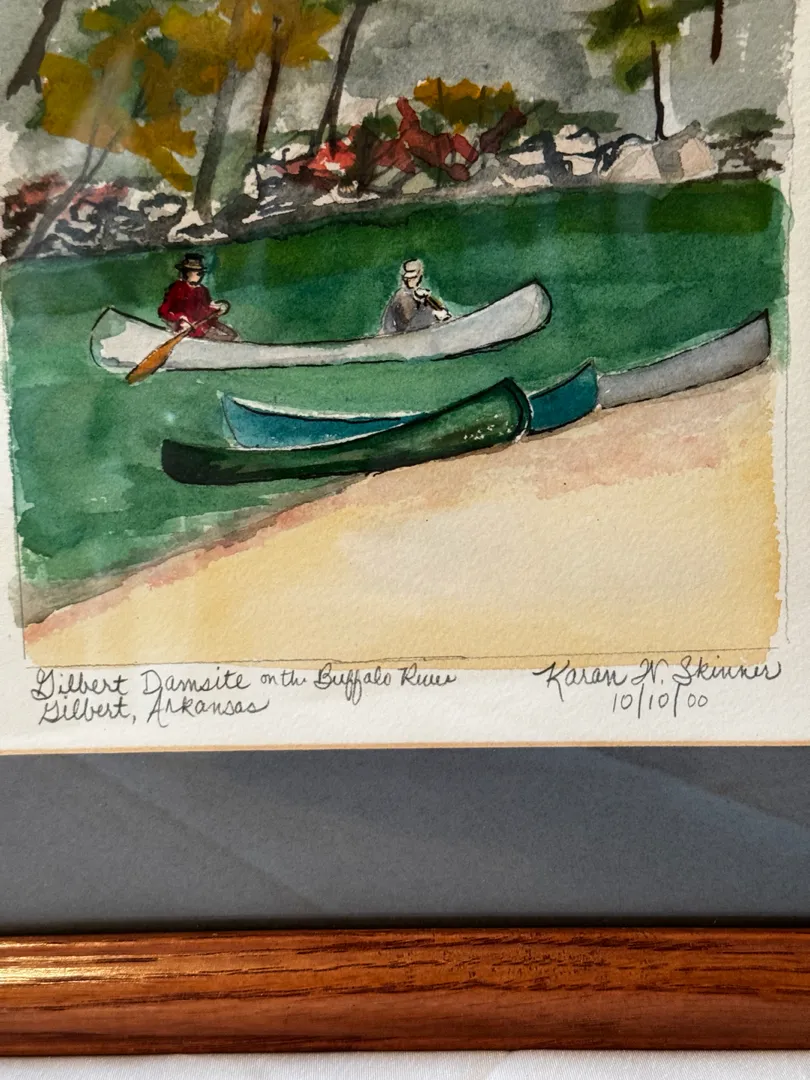 Gilbert Damsite on the Buffalo River
Gilbert, Arkansas
Karan N. Skinner
10/10/00